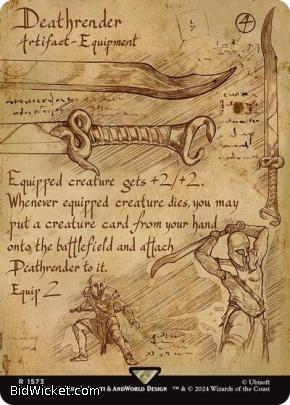 Deathrender
4
Artifact-Equipment
Equipped creature gets +2/+2.
Whenever equipped creature dies, you may
put a creature card from your hand
onto the battlefield and attach
Deathrender to it.
Equip 2
R 1573
© Ubisoft
AndWorld Design ™ & © 2024 Wizards of the Coast